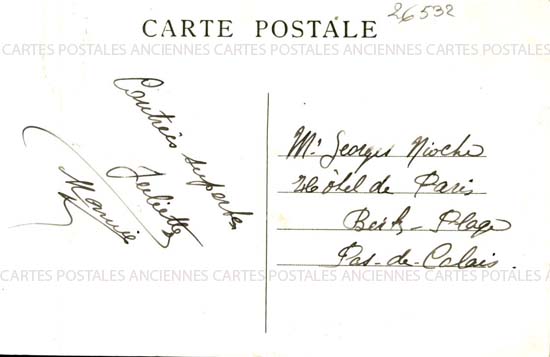 26532
CARTE POSTALE
CARTES POSTALES ANCIENNES CARTES POSTALES ANCIENNES CARTES POSTALES
Contrées superbes
Juliette
Marcie
Mr Georges Nioche
Hôtel de Paris
Berck-Plage
Pas-de-Calais.
CARTES POSTALES ANCIENNES CARTES POSTALES ANCIENNES CARTES POSTALES